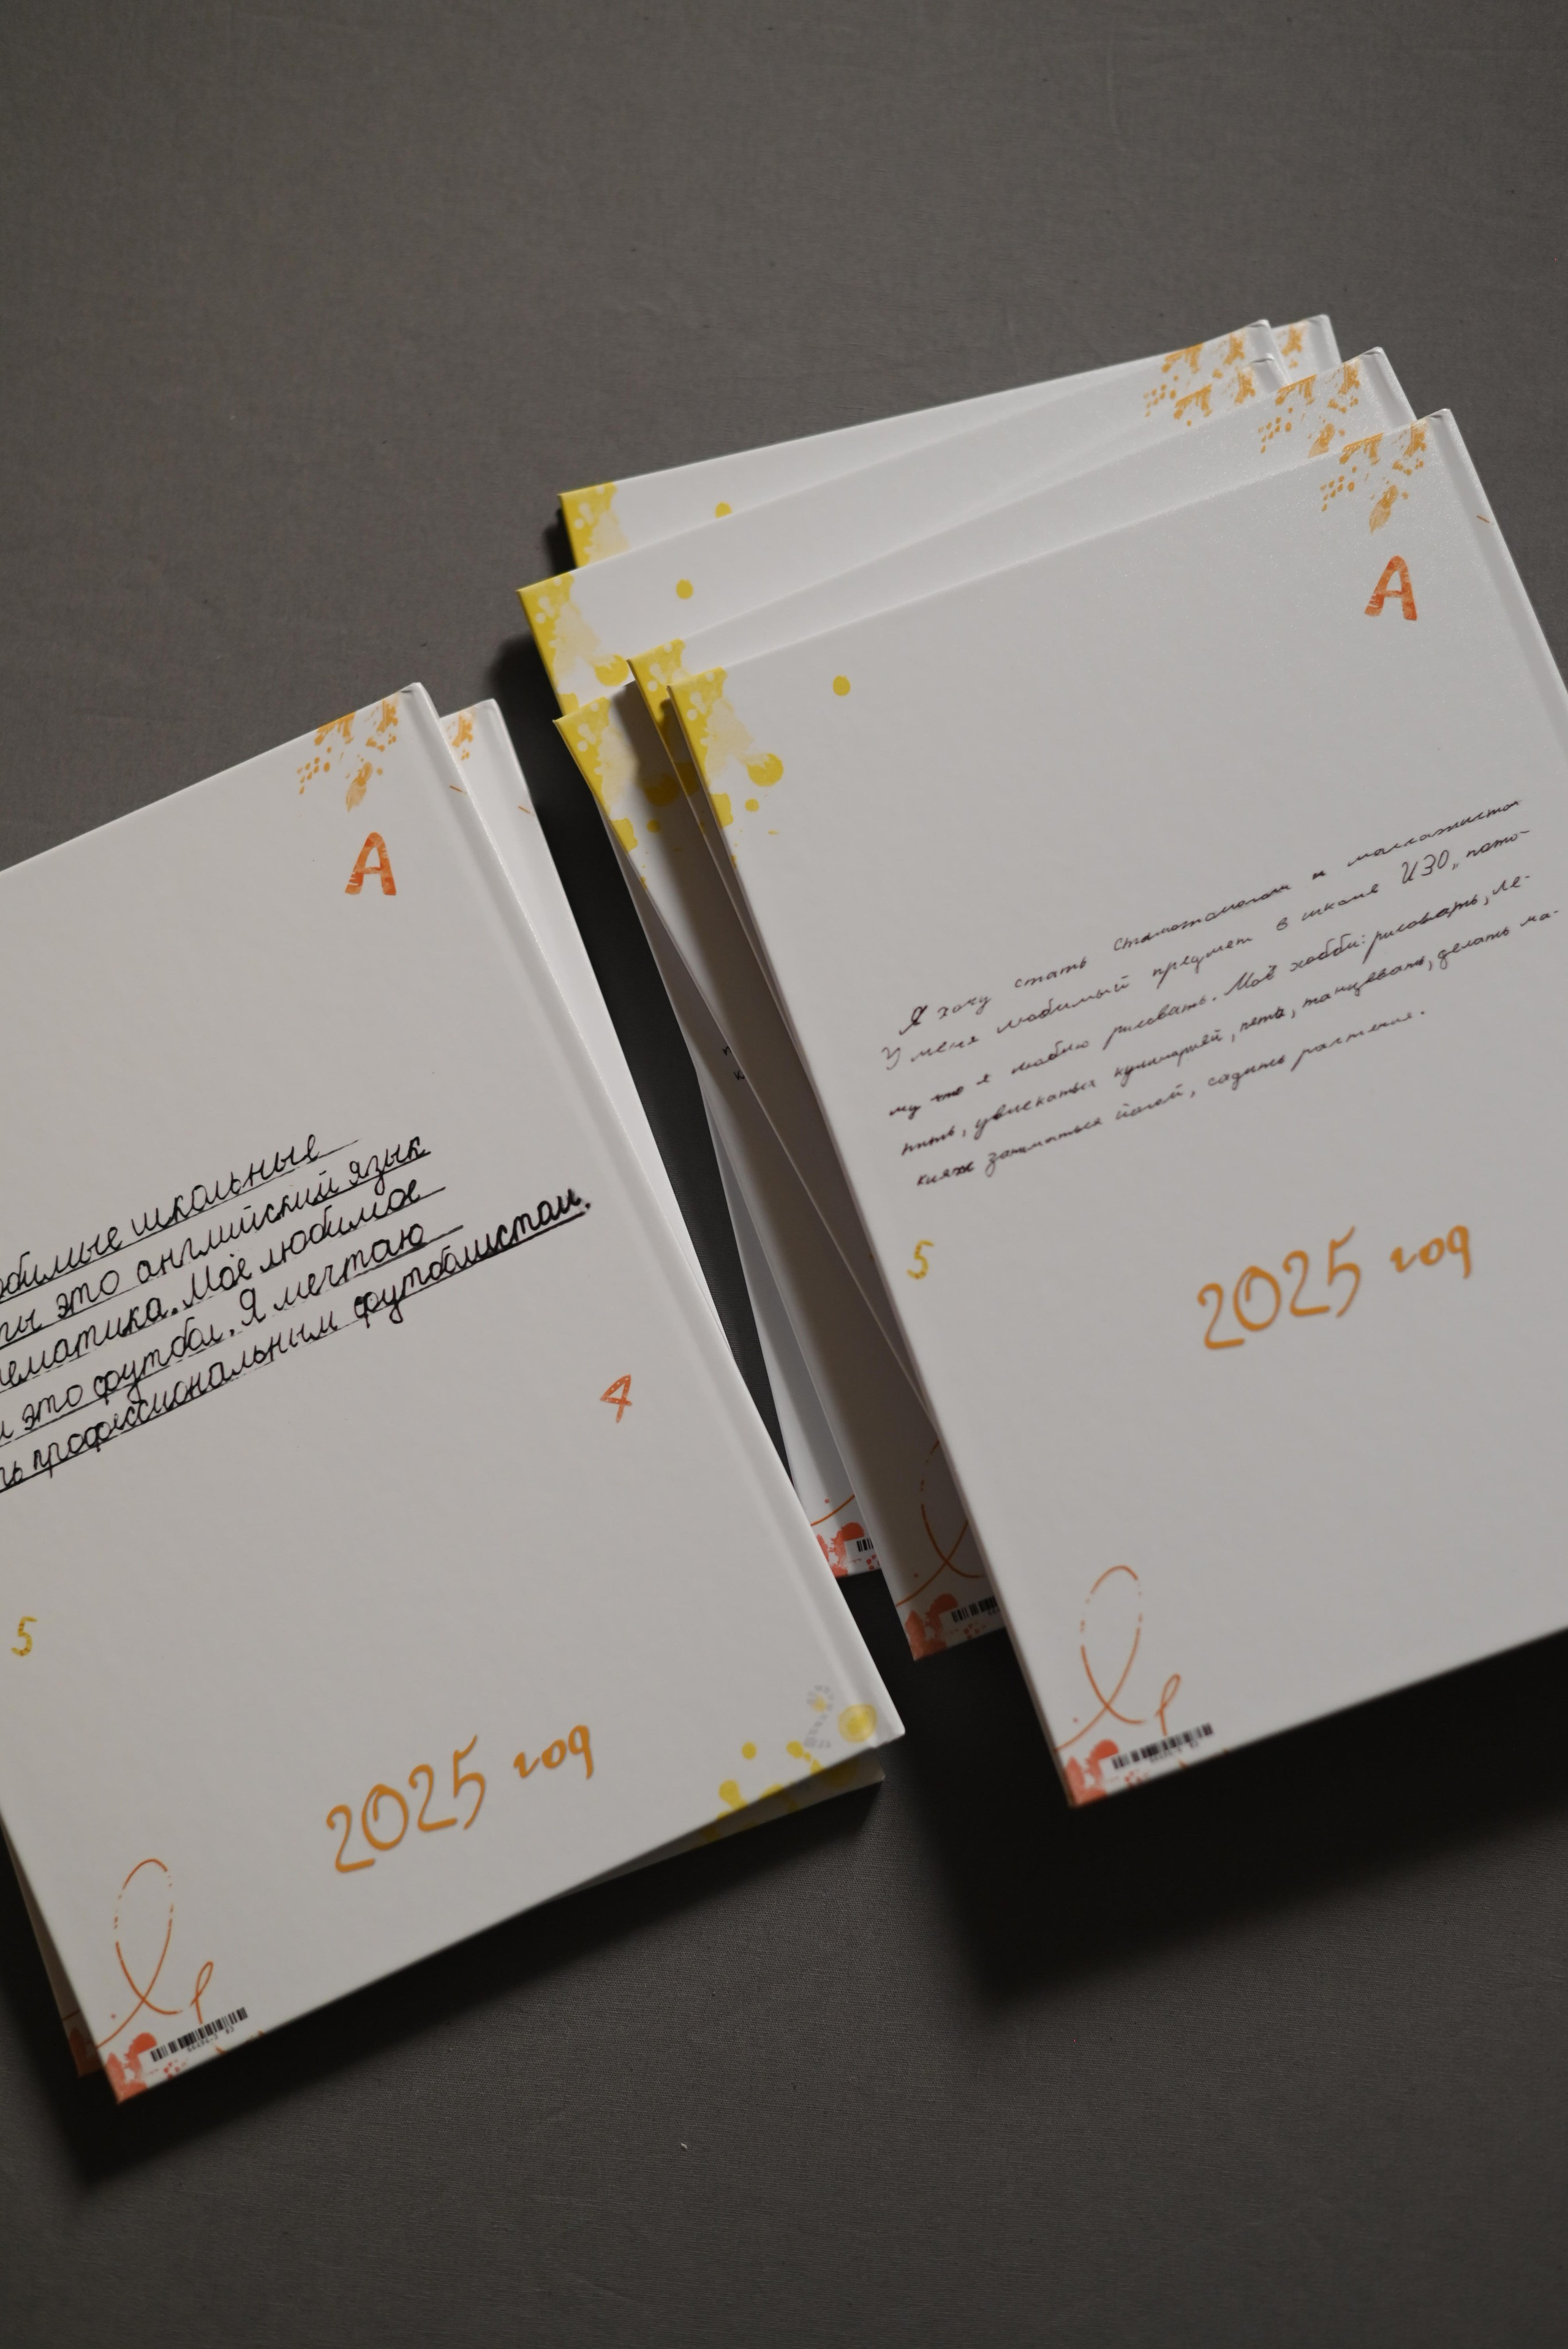 А
школьные
это английский язык
Моё любимое
это футбол. Я мечтаю
профессиональным футболистом.
4
5
2025 год
А
Я хочу стать стоматологом и массажистом
У меня любимый предмет в школе ИЗО, пото-
му что я люблю рисовать. Моё хобби: рисовать, ле-
пить, увлекаться кулинарией, петь, танцевать, делать ма-
кияж заниматься йогой, садить растения.
5
2025 год